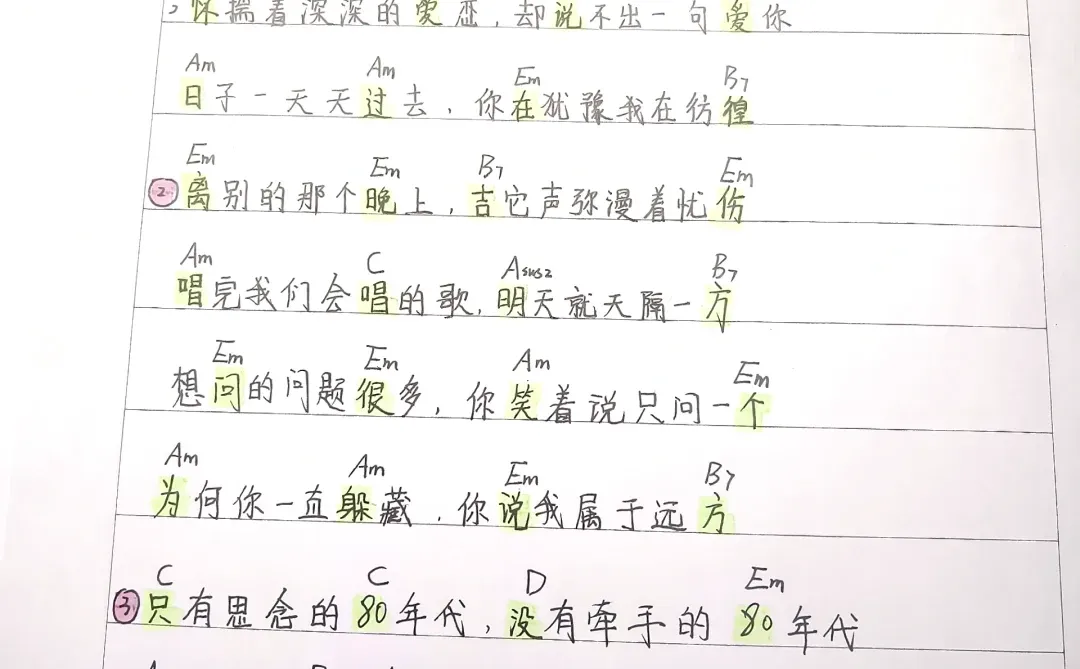 怀揣着深深的爱恋，却说不出一句爱你
Am Am Em B7
日子一天天过去，你在犹豫我在彷徨
Em Em B7 Em
② 离别的那个晚上，吉它声弥漫着忧伤
Am C Asus2 B7
唱完我们会唱的歌，明天就天隔一方
Em Em Am Em
想问的问题很多，你笑着说只问一个
Am Am Em B7
为何你一直躲藏，你说我属于远方
C C D Em
③ 只有思念的80年代，没有牵手的80年代